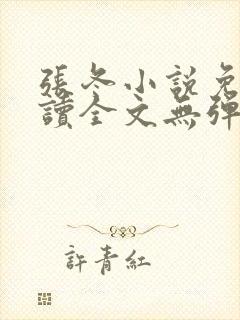 張冬小說免
讀全文無彈
許青紅